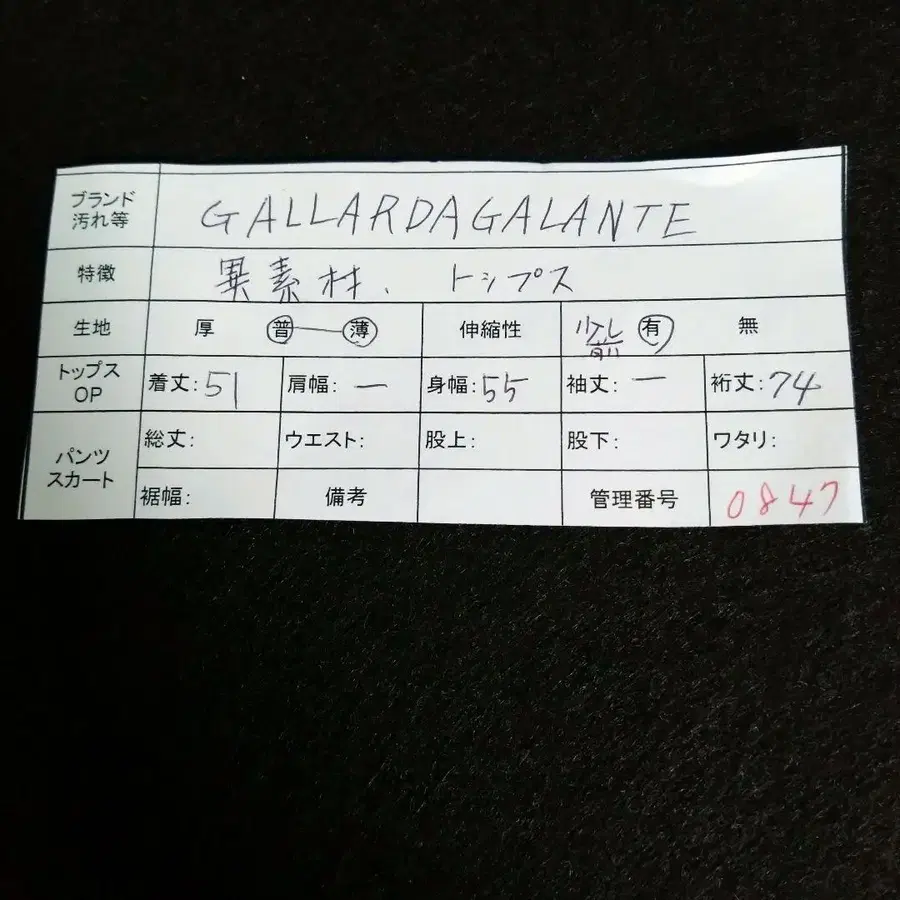 ブランド
汚れ等
GALLARDAGALANTE
特徴
異素材、トップス
生地 厚 普 薄 伸縮性 少し 前 有 無
トップス
OP
着丈:51 肩幅:ー 身幅:55 袖丈:ー 裄丈:74
パンツ
スカート
総丈: ウエスト: 股上: 股下: ワタリ:
裾幅: 備考 管理番号 0847